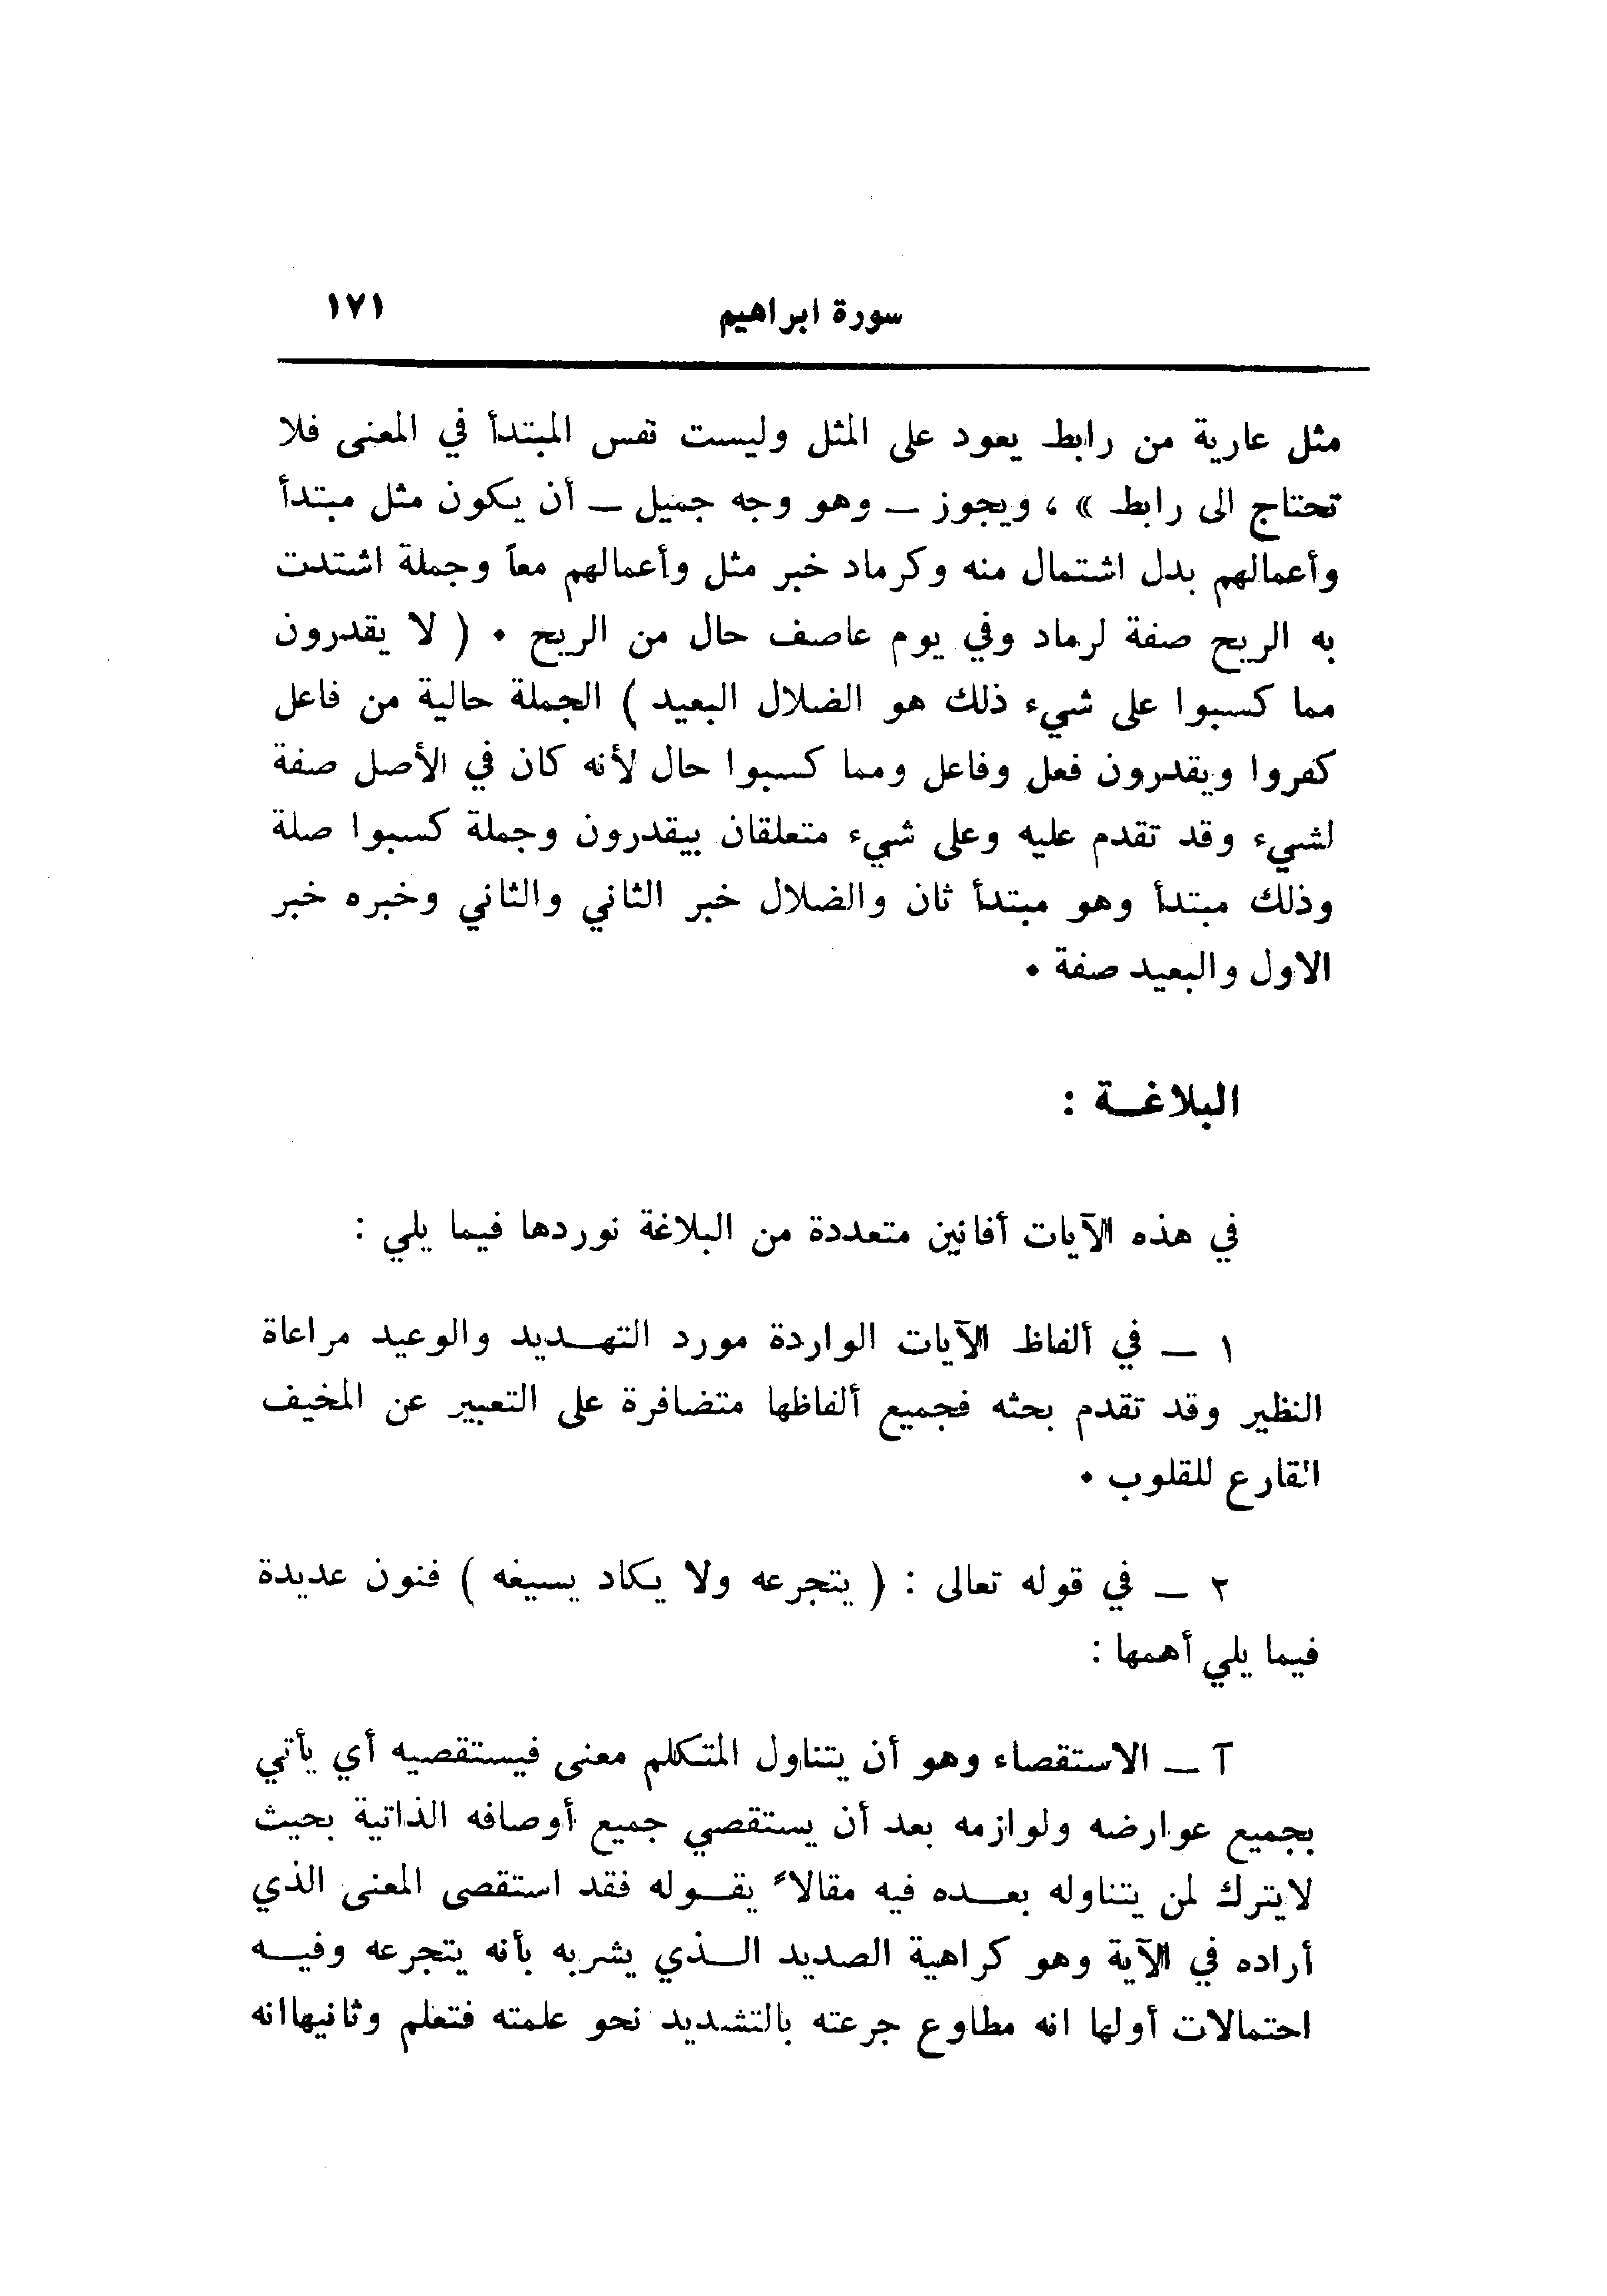 سورة ابراهيم
١٧١
مثل عارية من رابط يعود على المثل وليست نفس المبتدأ في المعنى فلا
تحتاج الى رابط » ، ويجوز — وهو وجه جميل — أن يكون مثل مبتدأ
وأعمالهم بدل اشتمال منه وكرماد خبر مثل وأعمالهم معاً وجملة اشتدت
به الريح صفة لرماد وفي يوم عاصف حال من الريح ٠ ( لا يقدرون
مما كسبوا على شيء ذلك هو الضلال البعيد ) الجملة حالية من فاعل
كفروا ويقدرون فعل وفاعل ومما كسبوا حال لأنه كان في الأصل صفة
لشيء وقد تقدم عليه وعلى شيء متعلقان بيقدرون وجملة كسبوا صلة
وذلك مبتدأ وهو مبتدأ ثان والضلال خبر الثاني والثاني وخبره خبر
الاول والبعيد صفة ٠
البلاغـة :
في هذه الآيات أفانين متعددة من البلاغة نوردها فيما يلي :
١ — في ألفاظ الآيات الواردة مورد التهـديد والوعيد مراعاة
النظير وقد تقدم بحثه فجميع ألفاظها متضافرة على التعبير عن المخيف
القارع للقلوب ٠
٢ — في قوله تعالى : ( يتجرعه ولا يكاد يسيغه ) فنون عديدة
فيما يلي أهمها :
آ — الاستقصاء وهو أن يتناول المتكلم معنى فيستقصيه أي يأتي
بجميع عوارضه ولوازمه بعد أن يستقصي جميع أوصافه الذاتية بحيث
لايترك لمن يتناوله بعـده فيه مقالاً يقـوله فقد استقصى المعنى الذي
أراده في الآية وهو كراهية الصديد الـذي يشربه بأنه يتجرعه وفيـه
احتمالات أولها انه مطاوع جرعته بالتشديد نحو علمته فتعلم وثانيهاانه